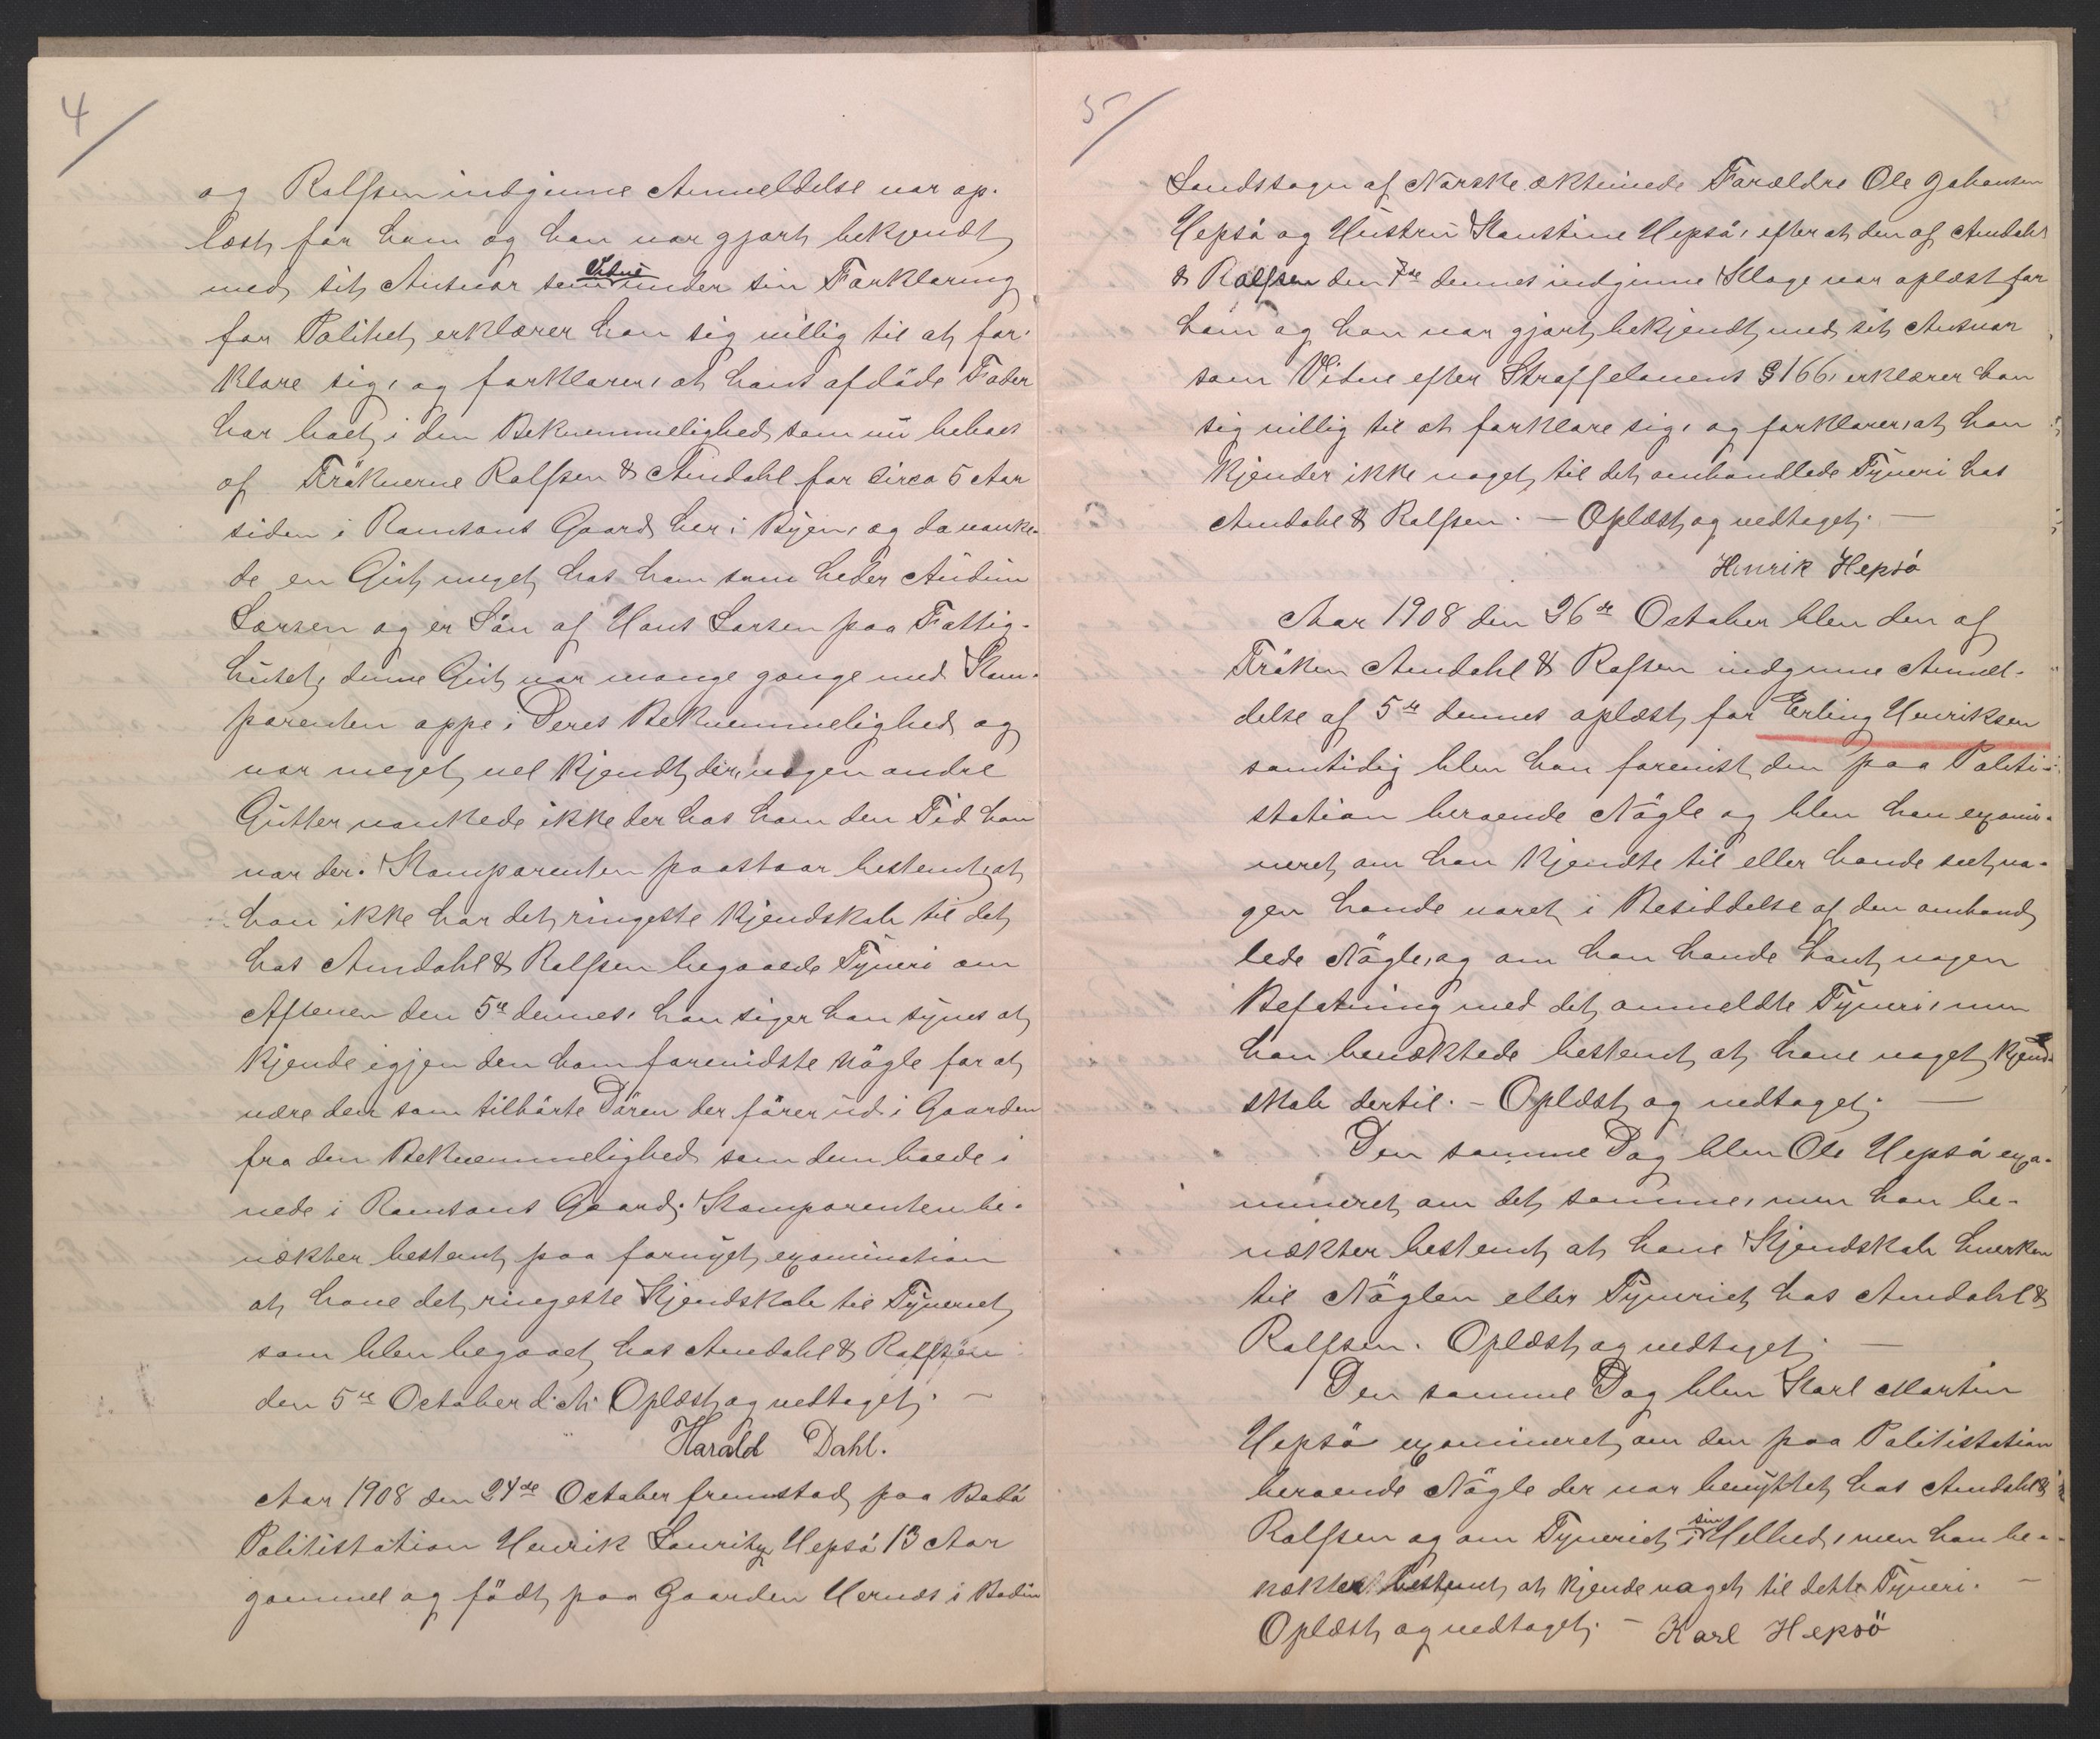 4
og Rolfsen indgivne Anmeldelse var op-
læst for ham og han var gjort bekjendt
med sit Ansvar som Vidne under sin Forklaring
for Politiet, erklærer han sig villig til at for-
klare sig, og forklarer, at hans afdöde Fader
har boet i den Bekvemmelighed som nu beboes
af Fröknerne Rolfsen & Amdahl for circa 5 Aar
siden i Ramsons Gaard her i Byen, og da vanke-
de en Gut meget hos ham som heder Audun
Larsen og er Sön af Hans Larsen paa Fattig-
huset, denne Gut var mange gange med Kom-
parenten oppe i Deres Bekvemmelighed og
var meget vel kjendt der, nogen andre
Gutter vankede ikke der hos ham den Tid han
var der. Komparenten paastaar bestemt, at
han ikke har det ringeste Kjendskab til det
hos Amdahl & Rolfsen begaaede Tyveri om
Aftenen den 5te dennes, han siger han synes at
kjende igjen den ham foreviste Nögle for at
være den som tilhörte Dören der förer ud i Gaarden
fra den Bekvemmelighed som dem boede i
nede i Ramsons Gaard. Komparenten be-
nækter bestemt paa fornyet examination
at have det ringeste Kjendskab til Tyveriet
som blev begaaet hos Amdahl & Rolfsen
den 5te October d. A. Oplæst og vedtaget. —
Harald Dahl.
Aar 1908 den 24de October fremstod paa Bodö
Politistation Henrik Lauritz Hepsö 13 Aar
gammel og födt paa Gaarden Hernæs i Bodin
5
Landssogn af Norske ækteviede Forældre Ole Johansen
Hepsö og Hustru Konstine Hepsö, efter at den af Amdahl
& Rolfsen den 7de dennes indgivne Klage var oplæst for
ham og han var gjort bekjendt med sit Ansvar
som Vidne efter Straffelovens § 166, erklærer han
sig villig til at forklare sig, og forklarer, at han
kjender ikke noget til det omhandlede Tyveri hos
Amdahl & Rolfsen. — Oplæst og vedtaget. —
Henrik Hepsö
Aar 1908 den 26de October blev den af
Fröken Amdahl & Rofsen indgivne Anmel-
delse af 5te dennes oplæst for Erling Henriksen
samtidig blev han forevist den paa Politi-
station beroende Nögle og blev han exami-
neret om han kjendte til eller havde seet no-
gen havde været i Besiddelse af den omhand-
lede Nögle, og om han havde havt nogen
Befatning med det anmeldte Tyveri, men
han benæktede bestemt at have noget Kjend-
skab dertil. — Oplæst og vedtaget. —
Den samme Dag blev Ole Hepsö exa-
mineret om det samme, men han be-
nækter bestemt at have Kjendskab hverken
til Nöglen eller Tyveriet hos Amdahl &
Rolfsen. Oplæst og vedtaget. —
Den samme Dag blev Karl Martin
Hepsö examineret om den paa Politistation
beroende Nögle der var benyttet hos Amdahl &
Rolfsen og om Tyveriet i sin Helhed, men han be-
nækter bestemt at kjende noget til dette Tyveri. —
Oplæst og vedtaget. — Karl Hepsö